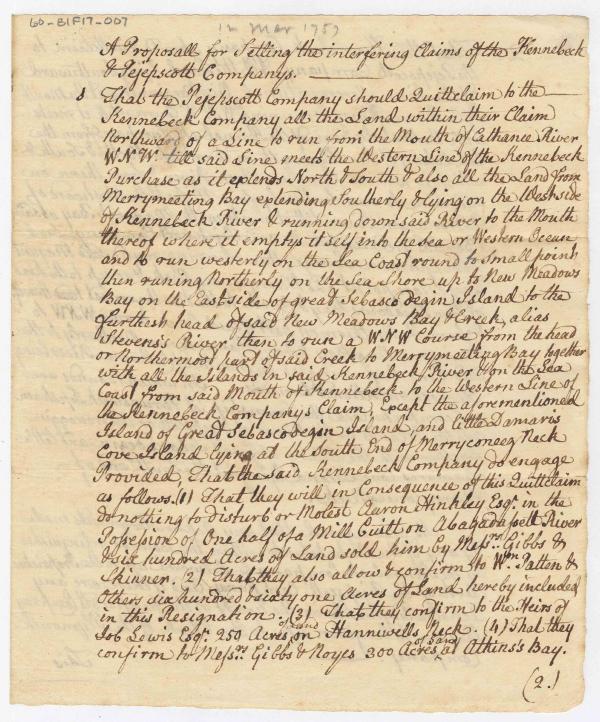 60-81F17-007
12 Mar 1757
A Proposall for Setling the interfering Claims of the Kennebeck
& Pejepscott Companys.
1 That the Pejepscott Company should Quittclaim to the
Kennebeck Company all the Land within their Claim
Northward of a Line to run from the Mouth of Cathance River
WNW. till said Line meets the Western Line of the Kennebeck
Purchase as it extends North & South & also all the Land from
Merrymeeting Bay extending Southerly & lying on the Westside
of Kennebeck River & running down said River to the Mouth
thereof where it emptys it self into the Sea or Western Ocean
and to run westerly on the Sea Coast round to Small point
then runing Northerly on the Sea Shore up to New Meadows
Bay on the East side of great Sebascodegin Island to the
furthest head of said New Meadows Bay & Creek, alias
Stevens's River then to run a WNW Course from the head
or Northermost part of said Creek to Merrymeeting Bay together
with all the Islands in said Kennebeck River & on the Sea
Coast from said Mouth of Kennebeck to the Western Line of
the Kennebeck Companys Claim, Except the aforementioned
Island of Great Sebascodegin Island, and little Damaris
Cove Island lying at the South End of Merryconeeg Neck
Provided, That the said Kennebeck Company do engage
as follows. (1) That they will in Consequence of this Quittclaim
do nothing to disturb or Molest Aaron Hinkley Esqr. in the
Possesion of One half of a Mill built on Abagadussett River
& six hundred Acres of Land sold him by Messrs. Gibbs &
Skinner. 2) That they also allow & confirm to Wm. Patten &
Others six hundred & sixty one Acres of Land hereby included
in this Resignation. (3) That they confirm to the Heirs of
Job Lewis Esqr. 250 Acres of Land on Hanniwells Neck. (4) That they
confirm to Messrs. Gibbs & Noyes 300 Acres of Land at Atkins's Bay.
(2.)